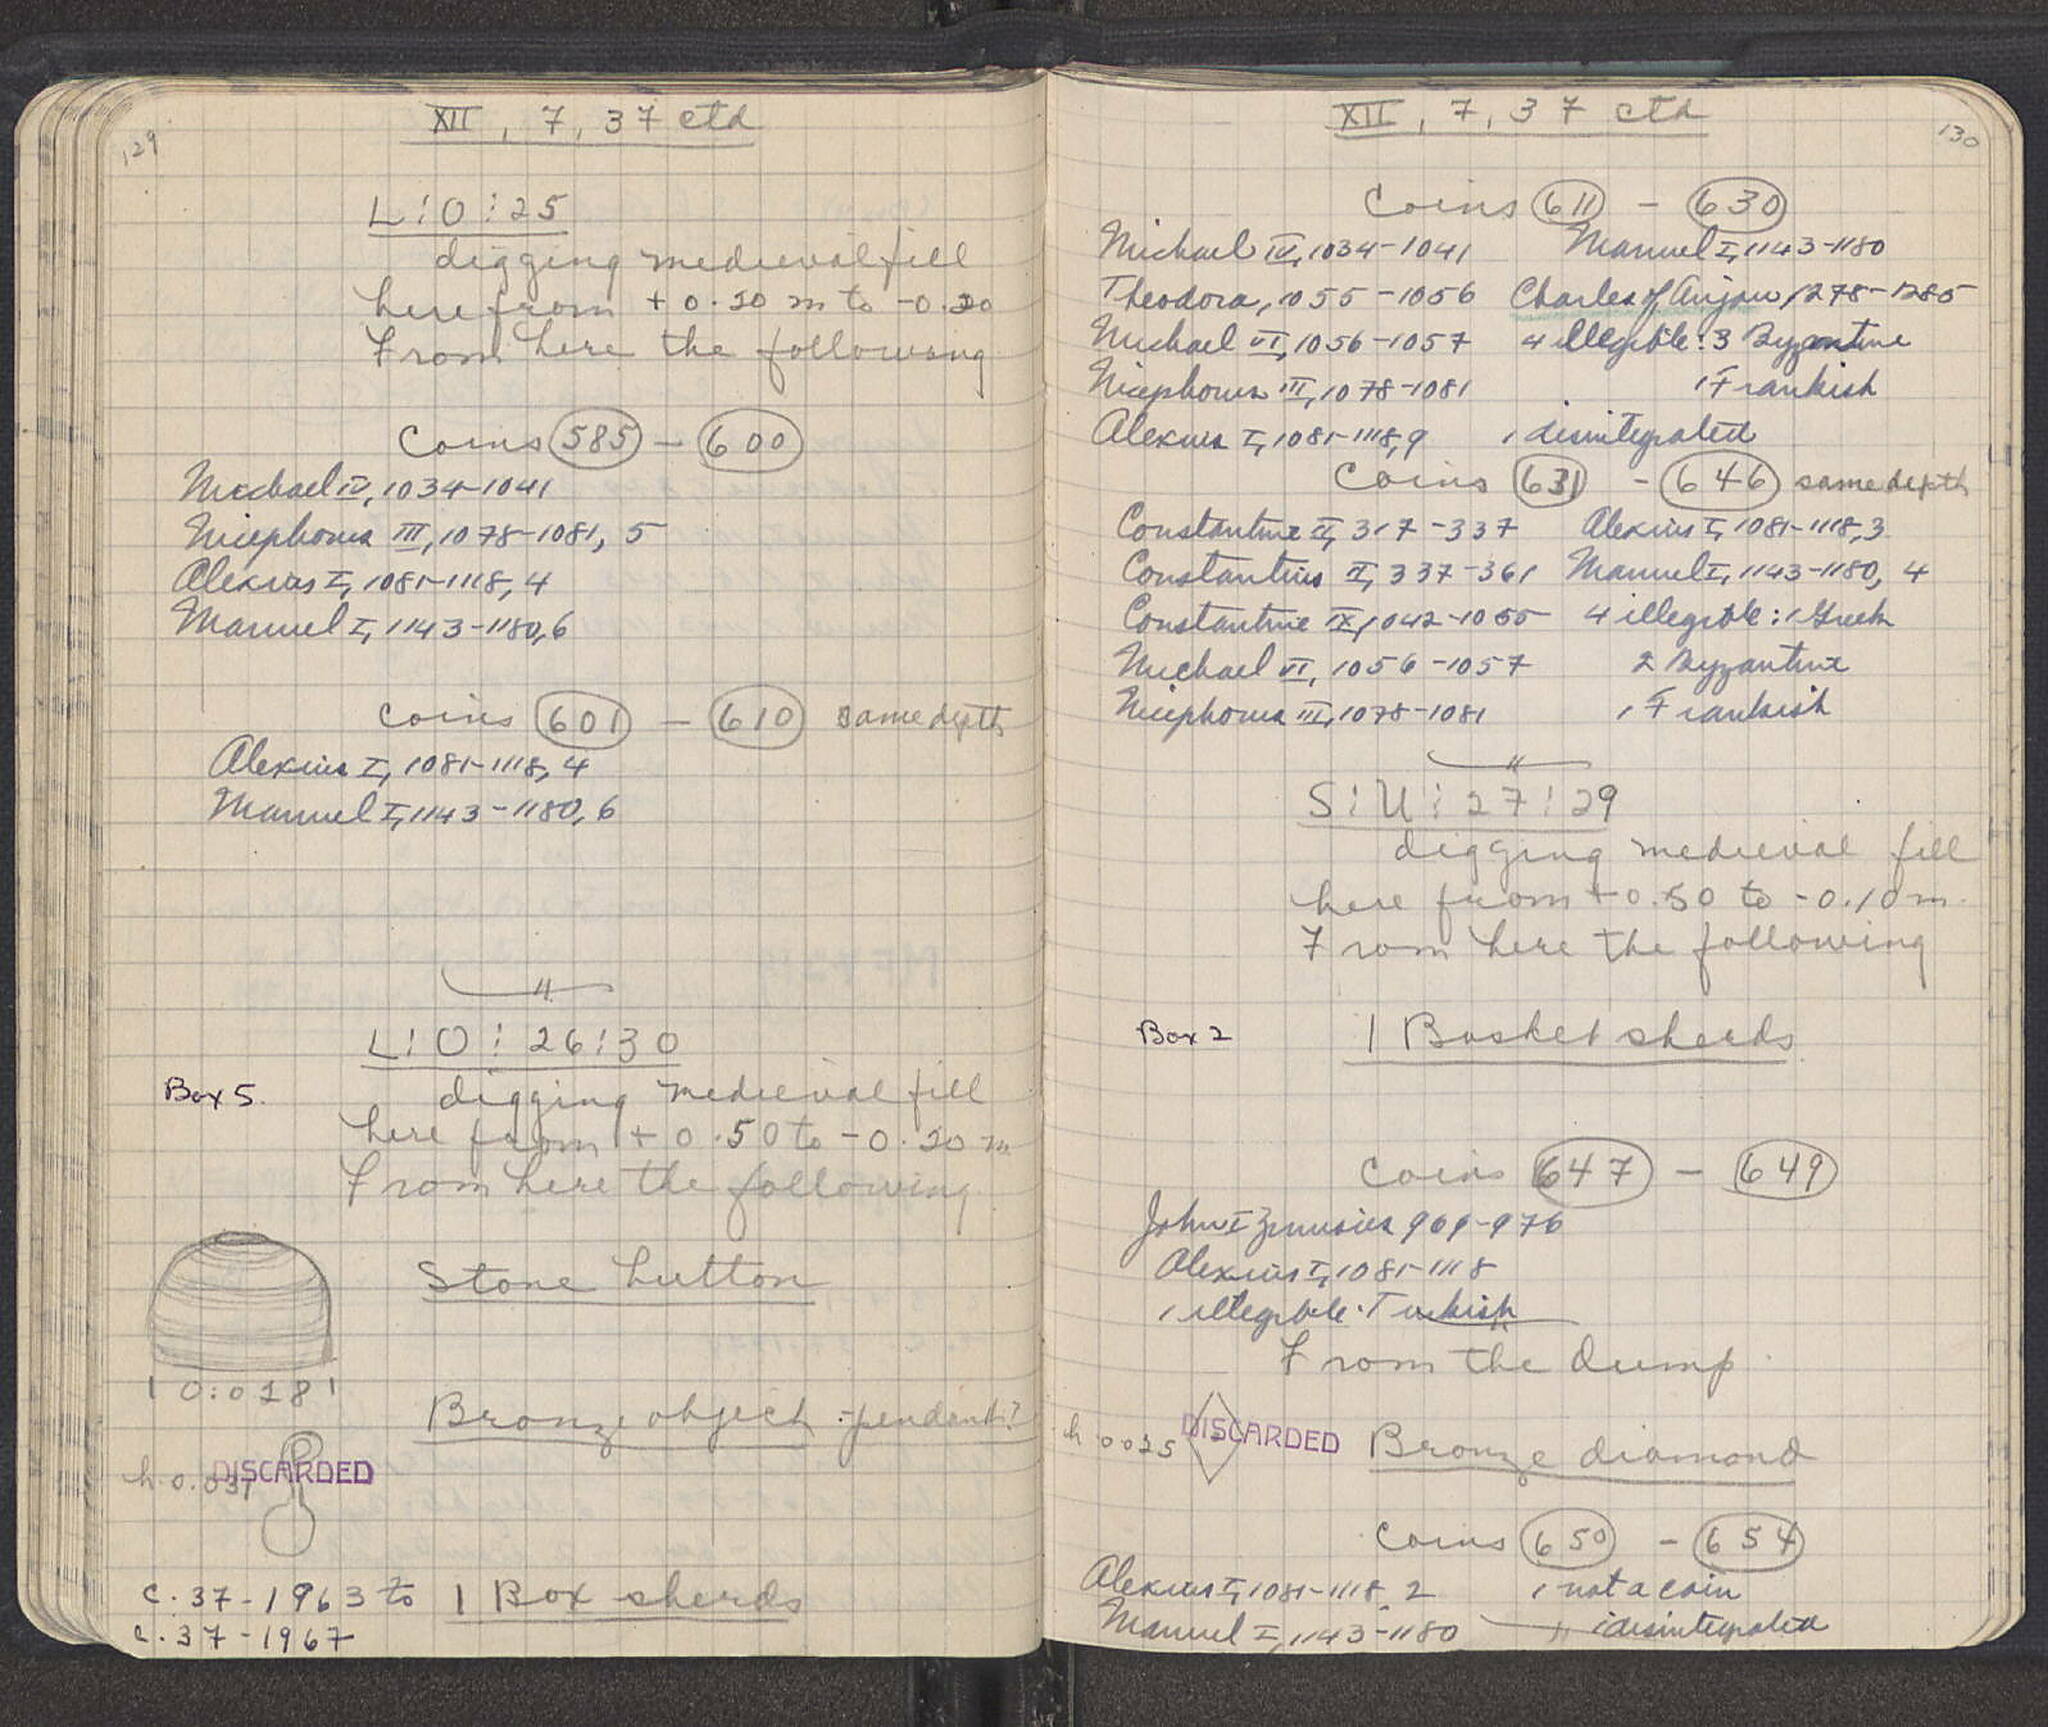 129
XII, 7, 37 ctd
L:O:25
digging medieval fill
here from +0.20 m to -0.20
From here the following
Coins 585 - 600
Michael IV, 1034-1041
Nicephorus III, 1078-1081, 5
Alexius I, 1081-1118, 4
Manuel I, 1143-1180, 6
Coins 601 - 610 same depth
Alexius I, 1081-1118, 4
Manuel I, 1143-1180, 6
L:O:26:30
Box 5.
digging medieval fill
here from +0.50 to -0.20 m
From here the following
Stone button
0:018
Bronze object - pendant?
h. 0.037
DISCARDED
C.37-1963 to
C.37-1967
1 Box sherds
130
XII, 7, 37 ctd
Coins 611 - 630
Michael IV, 1034-1041 Manuel I, 1143-1180
Theodora, 1055-1056 Charles of Anjou, 1278-1285
Michael VI, 1056-1057 4 illegible: 3 Byzantine
Nicephorus III, 1078-1081 1 Frankish
Alexius I, 1081-1118, 9 1 disintegrated
Coins 631 - 646 same depth
Constantine II, 317-337 Alexius I, 1081-1118, 3
Constantius II, 337-361 Manuel I, 1143-1180, 4
Constantine IX, 1042-1055 4 illegible: 1 Greek
Michael VI, 1056-1057 2 Byzantine
Nicephorus III, 1078-1081 1 Frankish
S:U:27:29
digging medieval fill
here from +0.50 to -0.10 m.
From here the following
Box 2 1 Basket sherds
Coins 647 - 649
John I Zimisces 969-976
Alexius I, 1081-1118
1 illegible. Turkish
From the dump
h 0025 DISCARDED Bronze diamond
Coins 650 - 654
Alexius I, 1081-1118, 2 1 not a coin
Manuel I, 1143-1180 1 disintegrated